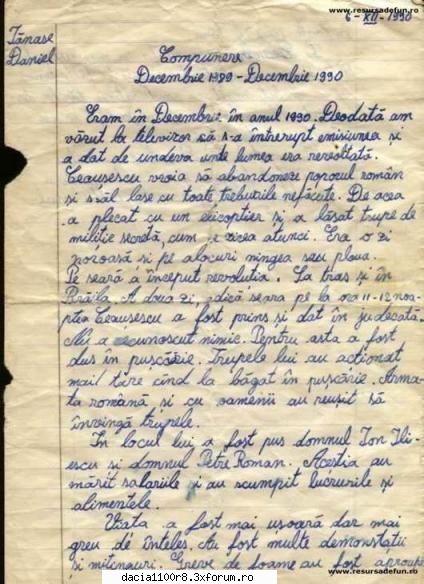 www.resursadefun.ro
6-XII-1990
Tănase
Daniel
Compunere
Decembrie 1989-Decembrie 1990
Eram în Decembrie în anul 1990. Deodată am
văzut la televizor că s-a întrerupt emisiunea și
a dat de undeva unte lumea era revoltată.
Ceausescu vroia să abandoneze poporul român
și s-ăl lase cu toate treburile nefăcute. De acea
a plecat cu un elicoptier și a lăsat trupe de
miliție secretă, cum e zicea atunci. Era o zi
noroasă si pe alocuri mingea seu ploua.
Pe seară a început revolutia. Sa tras și în
Brăila. A doua zi, adică seara pe la ora 11-12 noa-
ptea Ceausescu a fost prins și dat în judecată.
Nu a recunoscut nimic. Pentru asta a fost
dus în pușcărie. Trupele lui au acționat
mai tare cînd la băgat în pușcărie. Arma-
ta română și cu oamenii au reusit să
învingă trupele.
În locul lui a fost pus domnul Ion Ili-
escu și domnul Petre Roman. Aceștia au
mărit salariile și au scumpit lucrurile și
alimentele.
Viata a fost mai usoară dar mai
greu de înteles. Au fost multe demonstații
si mitinguri. Greve de foame au fost aproape
dacia1100r8.3xforum.ro
www.resursadefun.ro